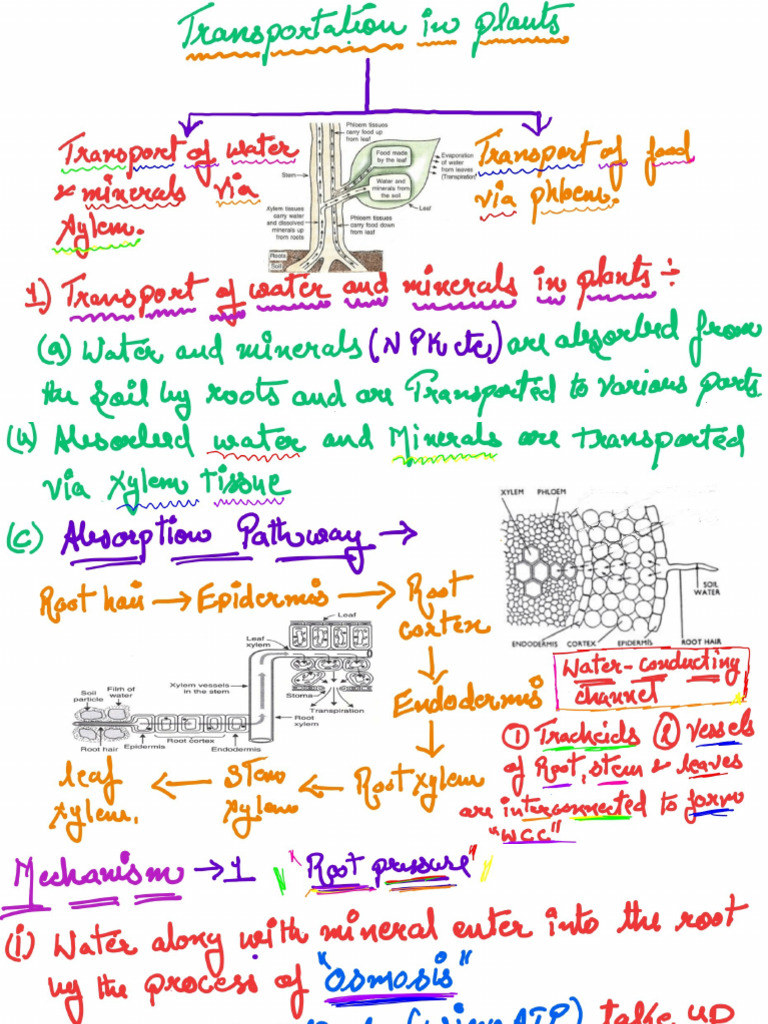 Transportation in plants
Transport of water
& minerals via
Xylem.
Phloem tissues
carry food up
from leaf
Food made
by the leaf
Water and
minerals from
the soil
Stem
Evaporation
of water
from leaves
(Transpiration)
Leaf
Xylem tissues
carry water
and dissolved
minerals up
from roots
Phloem tissues
carry food down
from leaf
Roots
Soil
Transport of food
via phloem.
1) Transport of water and minerals in plants ÷
(a) Water and minerals (N P K etc,) are absorbed from
the soil by roots and are Transported to various parts
(b) Absorbed water and Minerals are transported
via xylem tissue
(C) Absorption Pathway →
Root hair → Epidermis → Root
cortex
↓
Endodermis
↓
Root xylem
← Stem
xylem
← leaf
xylem.
XYLEM PHLOEM
SOIL
WATER
ENDODERMIS CORTEX EPIDERMIS ROOT HAIR
Leaf
Leaf
xylem
Xylem vessels
in the stem
Soil
particle
Film of
water
Stoma
Transpiration
Root
xylem
Root cortex
Root hair Epidermis Endodermis
Water-conducting
channel
① Tracheids ② vessels
of Root, stem & leaves
are interconnected to form
"WCC"
Mechanism → 1 "Root pressure"
(i) Water along with mineral enter into the root
by the process of "osmosis"
(using ATP) take up